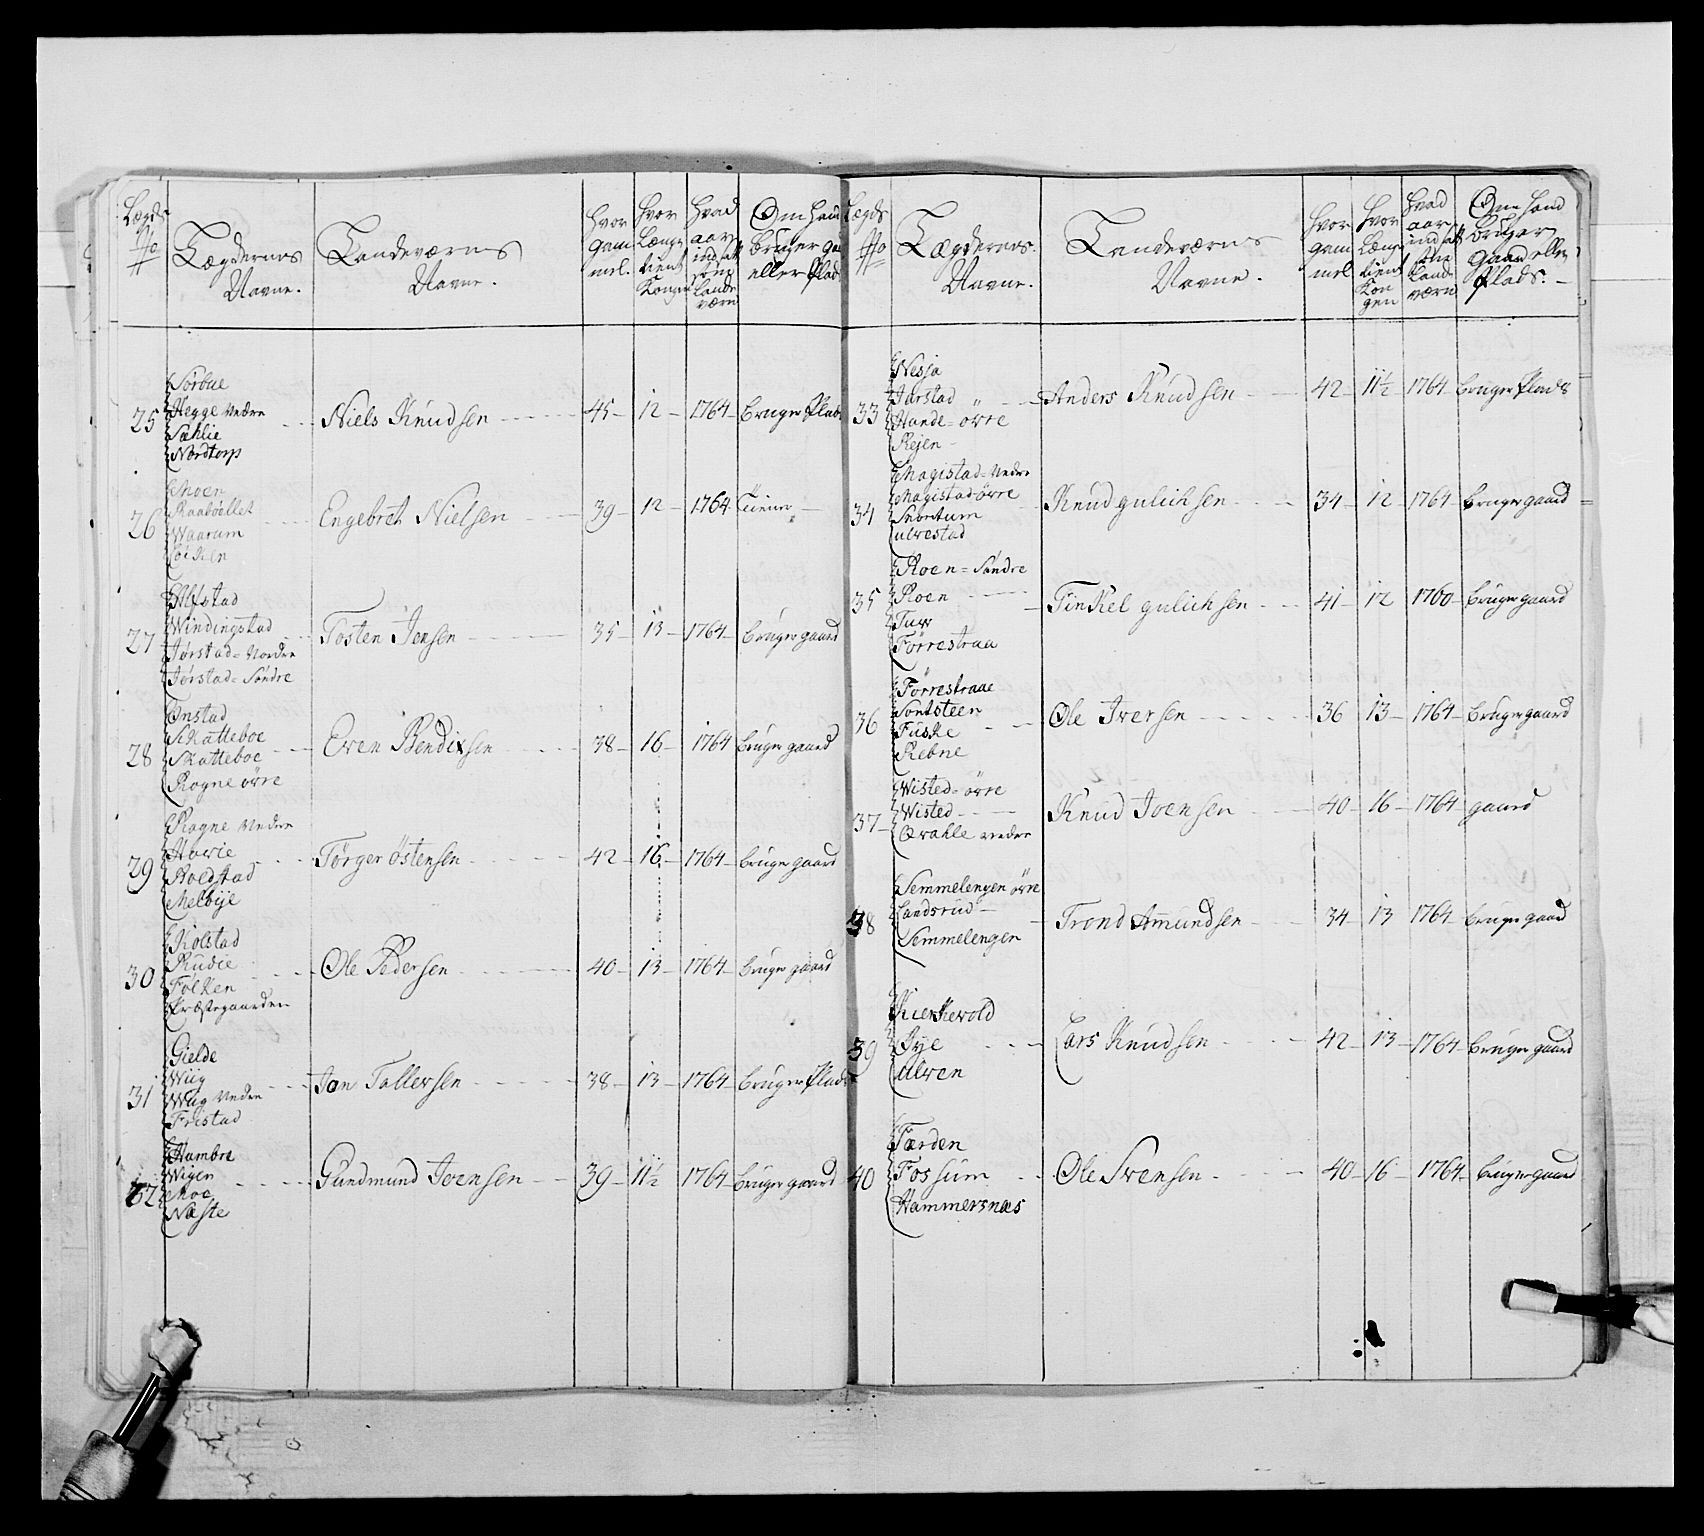 Lægds No
Lægdernes Navne.
Landeværns Navne.
Hvor gam mel.
Hvor Længe tient Kongen
Hvad aar indsatt som Lande værn
Om hand bruger gaard eller Plads
25
Sørbue
Hegge Nedre
Sæhlie
Nordtorp
Niels Knudsen 45 12 1764 bruger Plads
26
Moen
Raabøellet
Waarum
Loiken
Engebret Nielsen 39 12 1764
27
Alfstad
Windingstad
Jørstad Nordre
Jørstad Søndre
Tosten Jensen 35 13 1764 bruger gaard
28
Onstad
Skatteboe
Skatteboe
Rogne øvre
Even Bendixsen 38 16 1764 bruger gaard
29
Rogne Nedre
Hovie
Roedstad
Melbye
Törger Östensen 42 16 1764 bruger gaard
30
Kolstad
Rudie
Folken
Præstegaarden
Ole Pedersen 40 13 1764 bruger gaard
31
Gielde
Wiig
Wiig Nedre
Fristad
Jon Tollevsen 38 13 1764 bruger Plads
32
Hambre
Wigen
Moe
Næste
Gundmund Joensen 39 11½ 1764 bruger gaard
Lægds No
Lægdernes Navne.
Landeværns Navne.
Hvor gam mel
Hvor Længe tient Kon gen
Hvad aar indsatt som Lande værn
Om hand bruger gaard eller Plads.
33
Nesja
Jarstad
Hande øvre
Rejen
Anders Knudsen 42 11½ 1764 bruger Plads
34
Magistad Nedre
Magistad øvre
Sebutum
ulvestad
Knud gulichsen 34 12 1764 bruger gaard
35
Roen Søndre
Roen
Tuv
Förrestraa
Tinkel gulichsen 41 12 1760 bruger gaard
36
Förrestraae
Sontsteen
Fuske
Rebne
Ole Iversen 36 13 1764 bruger gaard
37
Wisted øvre
Wisted
Qvahle nedre
Knud Joensen 40 16 1764 gaard
38
Semmelengen øvre
Landsrud
Semmelengen
Trond Amundsen 34 13 1764 bruger gaard
39
Kierkevold
Jye
ulven
Lars Knudsen 42 13 1764 bruger gaard
40
Færden
Fossum
Hammersnæs
Ole Svensen 40 16 1764 bruger gaard